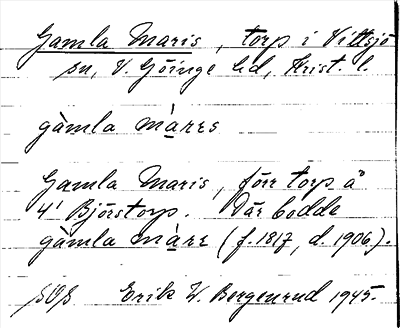 Gamla Maris, torp i Vittsjö
sn, V. Göinge hd, Krist. l.
gàmla màrɛs
Gamla Maris, förr torp å
4¹ Björstorp. Där bodde
gàmla màrɛ (f. 1817, d. 1906).
SOS Erik W. Bergenrud 1945.